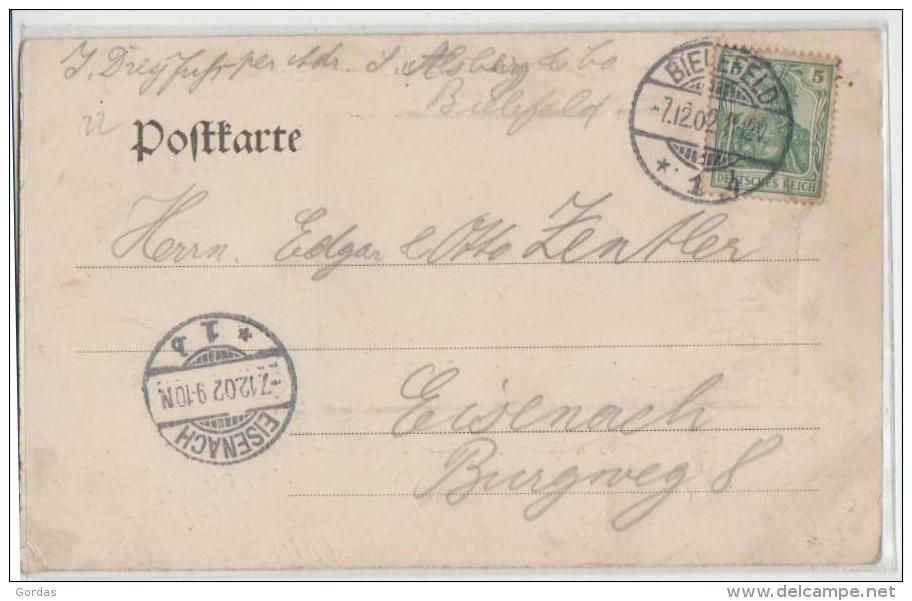 J. Dreyfuß per Adr. S. Alsberg & Co
Bielefeld
22
Postkarte
BIELEFELD
7.12.02
* 1 b
5
DEUTSCHES REICH
Herrn Edgar & Otto Zentler
* 1 b
7.12.02 9-10N
EISENACH
Eisenach
Burgweg 8
Gordas
delcampe.net